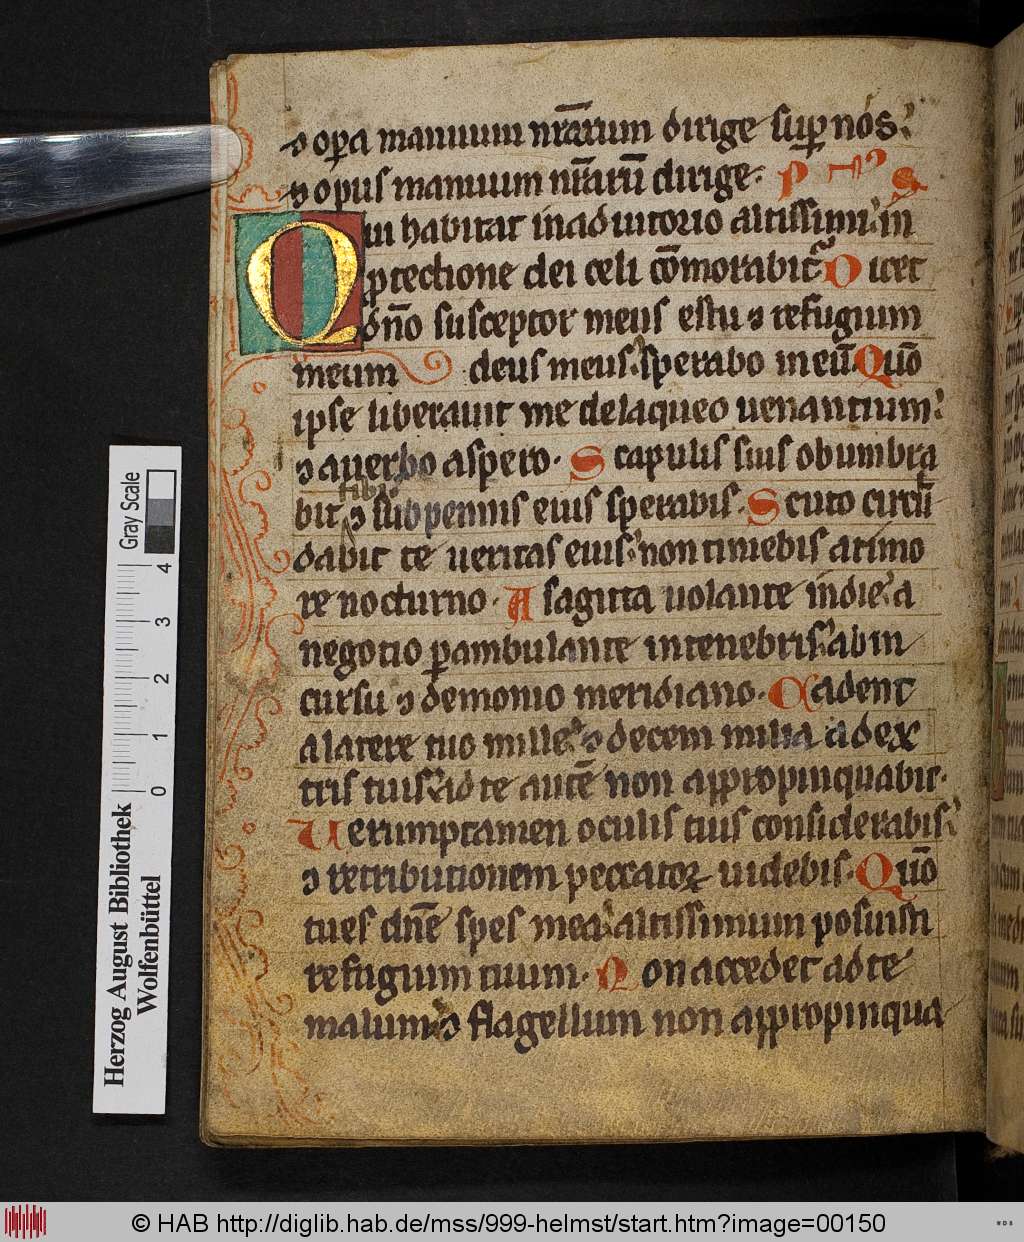 ⁊ oꝑa manuum nr̄arum dirige suꝑ nos:
⁊ opus manuum nr̄arū dirige. p̄s
Qui habitat in adiutorio altissimi: in
ꝓtectione dei celi cōmorabit᷑ Dicet
dn̄o susceptor meus es tu ⁊ refugium
meum deus meus: sperabo in eū. Quō
ipse liberauit me de laqueo uenantium:
⁊ a uerbo aspero. Scapulis suis obumbra
bit tibi: ⁊ sub pennis eius sperabis. Scuto circū
dabit te ueritas eius: non timebis a timo
re nocturno. A sagitta uolante in die: a
negotio ꝑambulante in tenebris: ab in
cursu ⁊ demonio meridiano. Cadent
a latere tuo mille: ⁊ decem milia a dex
tris tuis: ad te autē non appropinquabit.
Uerumptamen oculis tuis considerabis:
⁊ retributionem peccatoꝝ uidebis. Quō
tu es dn̄e spes mea: altissimum posuisti
refugium tuum. Non accedet ad te
malum: ⁊ flagellum non appropinqua
Gray Scale
4 3 2 1 0
Herzog August Bibliothek
Wolfenbüttel
© HAB http://diglib.hab.de/mss/999-helmst/start.htm?image=00150